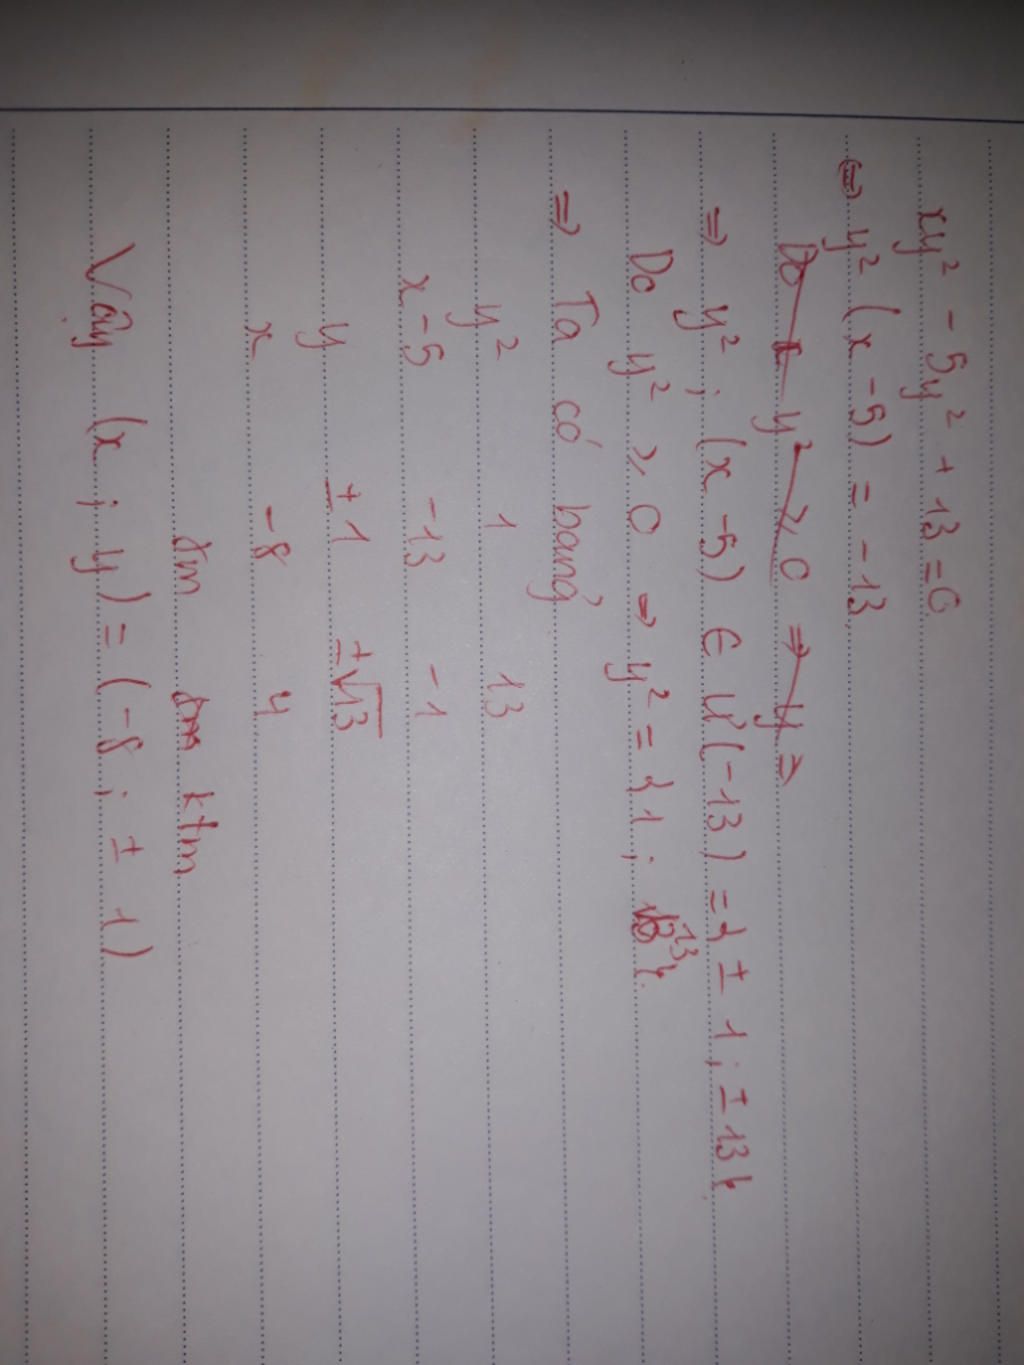 xy² - 5y² + 13 = 0
⇔ y² (x - 5) = -13
Do x y² ≥ 0 ⇒ y ⇒
⇒ y² ; (x - 5) ∈ Ư(-13) = { ± 1 ; ± 13 }
Do y² ≥ 0 ⇒ y² = { 1 ; 13 }
⇒ Ta có bảng
y² 1 13
x - 5 -13 -1
y ± 1 ± √13
x -8 4
tm ktm
Vậy (x ; y) = (-8 ; ± 1)